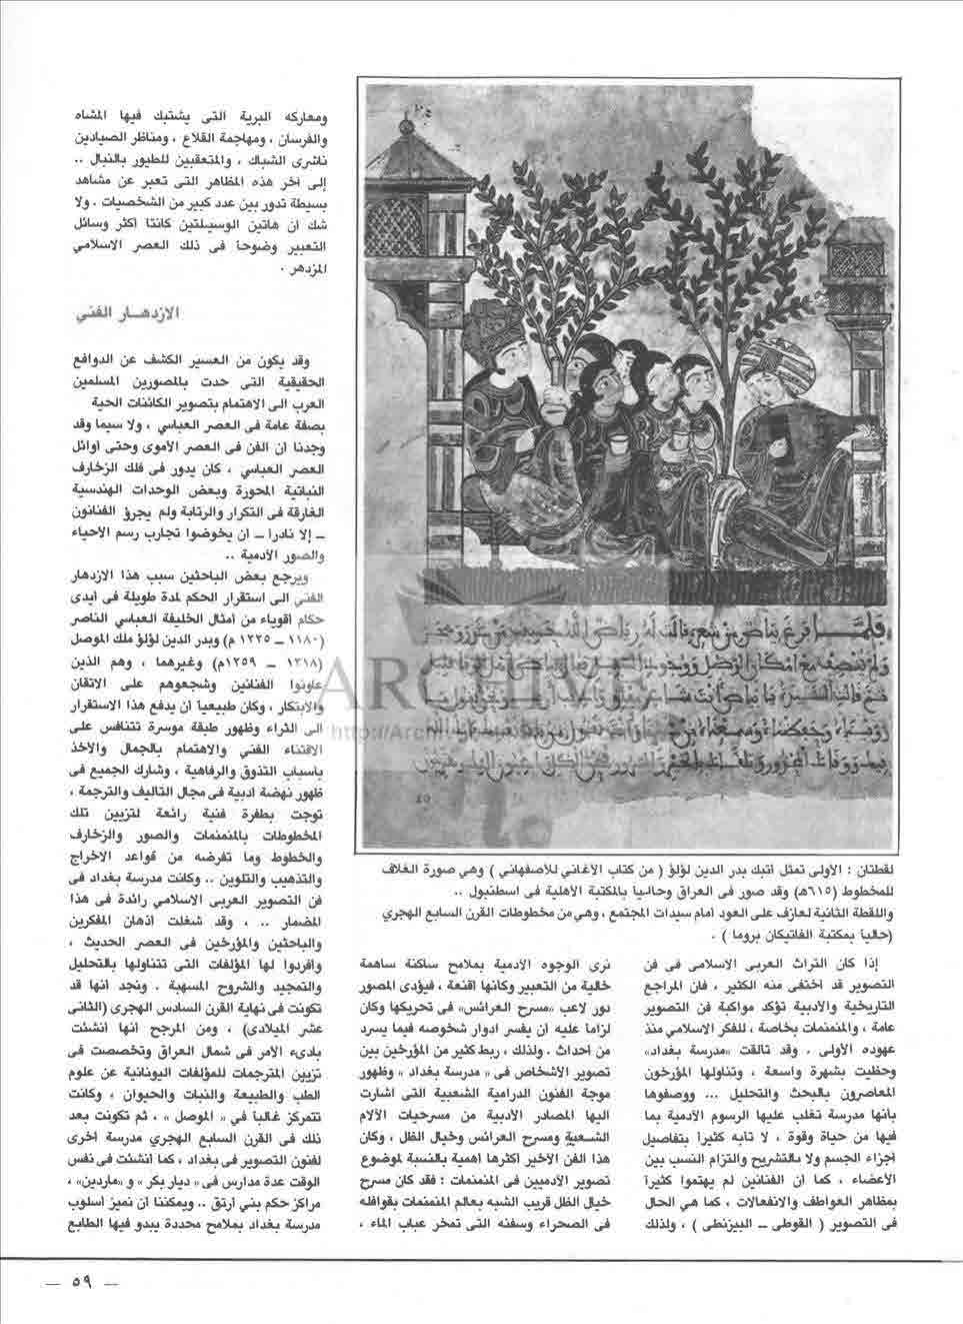 لقطتان : الأولى تمثل أتبك بدر الدين لؤلؤ ( من كتاب الأغاني للأصفهاني ) وهي صورة الغلاف
للمخطوط (٦١٥هـ) وقد صور فى العراق وحالياً بالمكتبة الأهلية فى اسطنبول ..
واللقطة الثانية لعازف على العود أمام سيدات المجتمع ، وهي من مخطوطات القرن السابع الهجري
(حالياً بمكتبة الفاتيكان بروما ) .
إذا كان التراث العربى الاسلامى فى فن
التصوير قد اختفى منه الكثير ، فان المراجع
التاريخية والأدبية تؤكد مواكبة فن التصوير
عامة ، والمنمنمات بخاصة ، للفكر الاسلامي منذ
عهوده الأولى . وقد تألقت «مدرسة بغداد»
وحظيت بشهرة واسعة ، وتناولها المؤرخون
المعاصرون بالبحث والتحليل ... ووصفوها
بأنها مدرسة تغلب عليها الرسوم الآدمية بما
فيها من حياة وقوة ، لا تأبه كثيراً بتفاصيل
أجزاء الجسم ولا بالتشريح والتزام النسب بين
الأعضاء ، كما أن الفنانين لم يهتموا كثيراً
بمظاهر العواطف والانفعالات ، كما هي الحال
فى التصوير ( القوطى ــ البيزنطى ) ، ولذلك
نرى الوجوه الآدمية بملامح ساكنة ساهمة
خالية من التعبير وكأنها أقنعة ، فيؤدى المصور
دور لاعب «مسرح العرائس» فى تحريكها وكان
لزاما عليه ان يفسر أدوار شخوصه فيما يسرد
من أحداث . ولذلك ، ربط كثير من المؤرخين بين
تصوير الأشخاص فى « مدرسة بغداد » وظهور
موجة الفنون الدرامية الشعبية التى أشارت
اليها المصادر الأدبية من مسرحيات الآلام
الشعبية ومسرح العرائس وخيال الظل ، وكان
هذا الفن الأخير أكثرها أهمية بالنسبة لموضوع
تصوير الآدميين فى المنمنمات : فقد كان مسرح
خيال الظل قريب الشبه بعالم المنمنمات بقوافله
فى الصحراء وسفنه التى تمخر عباب الماء ،
ومعاركه البرية التى يشتبك فيها المشاه
والفرسان ، ومهاجمة القلاع ، ومناظر الصيادين
ناشرى الشباك ، والمتعقبين للطيور بالنبال ..
إلى آخر هذه المظاهر التى تعبر عن مشاهد
بسيطة تدور بين عدد كبير من الشخصيات . ولا
شك ان هاتين الوسيلتين كانتا أكثر وسائل
التعبير وضوحاً فى ذلك العصر الاسلامي
المزدهر .
الازدهـار الفني
وقد يكون من العسير الكشف عن الدوافع
الحقيقية التى حدت بالمصورين المسلمين
العرب الى الاهتمام بتصوير الكائنات الحية
بصفة عامة فى العصر العباسي ، ولا سيما وقد
وجدنا أن الفن فى العصر الأموى وحتى أوائل
العصر العباسي ، كان يدور فى فلك الزخارف
النباتية المحورة وبعض الوحدات الهندسية
الغارقة فى التكرار والرتابة ولم يجرؤ الفنانون
ــ إلا نادرا ــ ان يخوضوا تجارب رسم الأحياء
والصور الآدمية ..
ويرجع بعض الباحثين سبب هذا الازدهار
الفني الى استقرار الحكم لمدة طويلة فى أيدى
حكام أقوياء من أمثال الخليفة العباسي الناصر
(١١٨٠ ــ ١٢٢٥ م) وبدر الدين لؤلؤ ملك الموصل
(١٢١٨ ــ ١٢٥٩م) وغيرهما ، وهم الذين
عاونوا الفنانين وشجعوهم على الاتقان
والابتكار ، وكان طبيعياً ان يدفع هذا الاستقرار
الى الثراء وظهور طبقة موسرة تتنافس على
الاقتناء الفني والاهتمام بالجمال والأخذ
بأسباب التذوق والرفاهية ، وشارك الجميع فى
ظهور نهضة أدبية فى مجال التأليف والترجمة ،
توجت بطفرة فنية رائعة لتزيين تلك
المخطوطات بالمنمنمات والصور والزخارف
والخطوط وما تفرضه من قواعد الاخراج
والتذهيب والتلوين .. وكانت مدرسة بغداد فى
فن التصوير العربى الاسلامي رائدة فى هذا
المضمار .. ، وقد شغلت أذهان المفكرين
والباحثين والمؤرخين فى العصر الحديث ،
وأفردوا لها المؤلفات التى تتناولها بالتحليل
والتمجيد والشروح المسهبة . ونجد انها قد
تكونت فى نهاية القرن السادس الهجرى (الثانى
عشر الميلادى) ، ومن المرجح انها أنشئت
بادىء الأمر فى شمال العراق وتخصصت فى
تزيين المترجمات للمؤلفات اليونانية عن علوم
الطب والطبيعة والنبات والحيوان ، وكانت
تتمركز غالباً في « الموصل » ، ثم تكونت بعد
ذلك فى القرن السابع الهجري مدرسة أخرى
لفنون التصوير فى بغداد ، كما أنشئت فى نفس
الوقت عدة مدارس فى « ديار بكر » و «ماردين» ،
مراكز حكم بني أرتق .. ويمكننا ان نميز أسلوب
مدرسة بغداد بملامح محددة يبدو فيها الطابع
ARCHIVE
ــ ٥٩ ــ